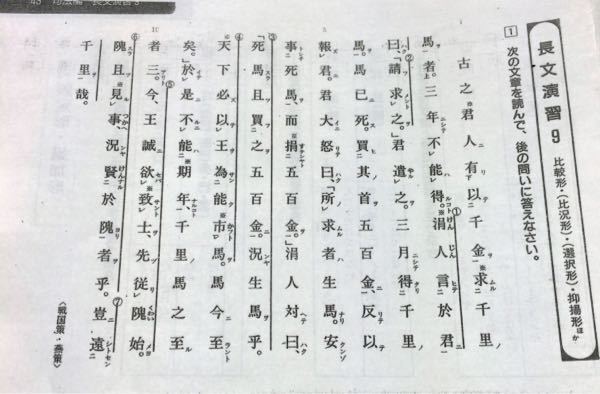 長文演習9 比較形・(比況形)・(選択形)・抑揚形ほか
1 次の文章を読んで、後の問いに答えなさい。
古之君人有以千金※求千里
馬者。三年不能得。※涓人言於君
曰、「請求之。」君遣之。三月得千里
馬。馬已死。買其首五百金、反以
報君。君大怒曰、「所求者生馬。安
事死馬、而※捐五百金。」涓人対曰、
「死馬且買之五百金。況生馬乎。
天下必以王為能※市馬。馬今至
矣。」於是不能※期年、千里馬之至
者三。今、王誠欲※致士、先従隗始。
隗且見※事、況賢於隗者乎。豈遠
千里哉。
〈戦国策・燕策〉